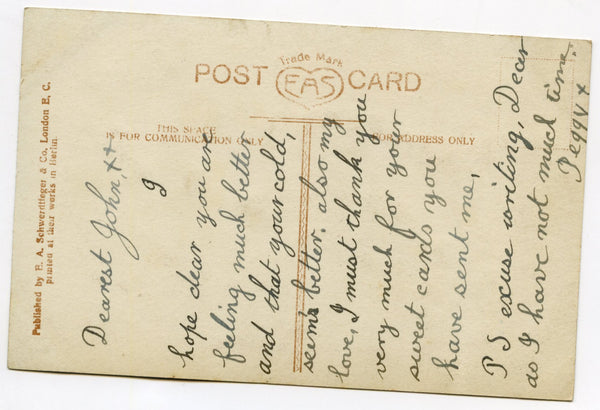 POST CARD
Trade Mark
EAS
THIS SPACE
IS FOR COMMUNICATION ONLY
FOR ADDRESS ONLY
Published by E. A. Schwerdtfeger & Co. London E. C.
printed at their works in Berlin.
Dearest John, x+
I
hope dear you are
feeling much better
and that your cold,
seems better. also my
love, I must thank you
very much for your
sweet cards you
have sent me,
PS excuse writing, Dear
as I have not much time.
Peggy x